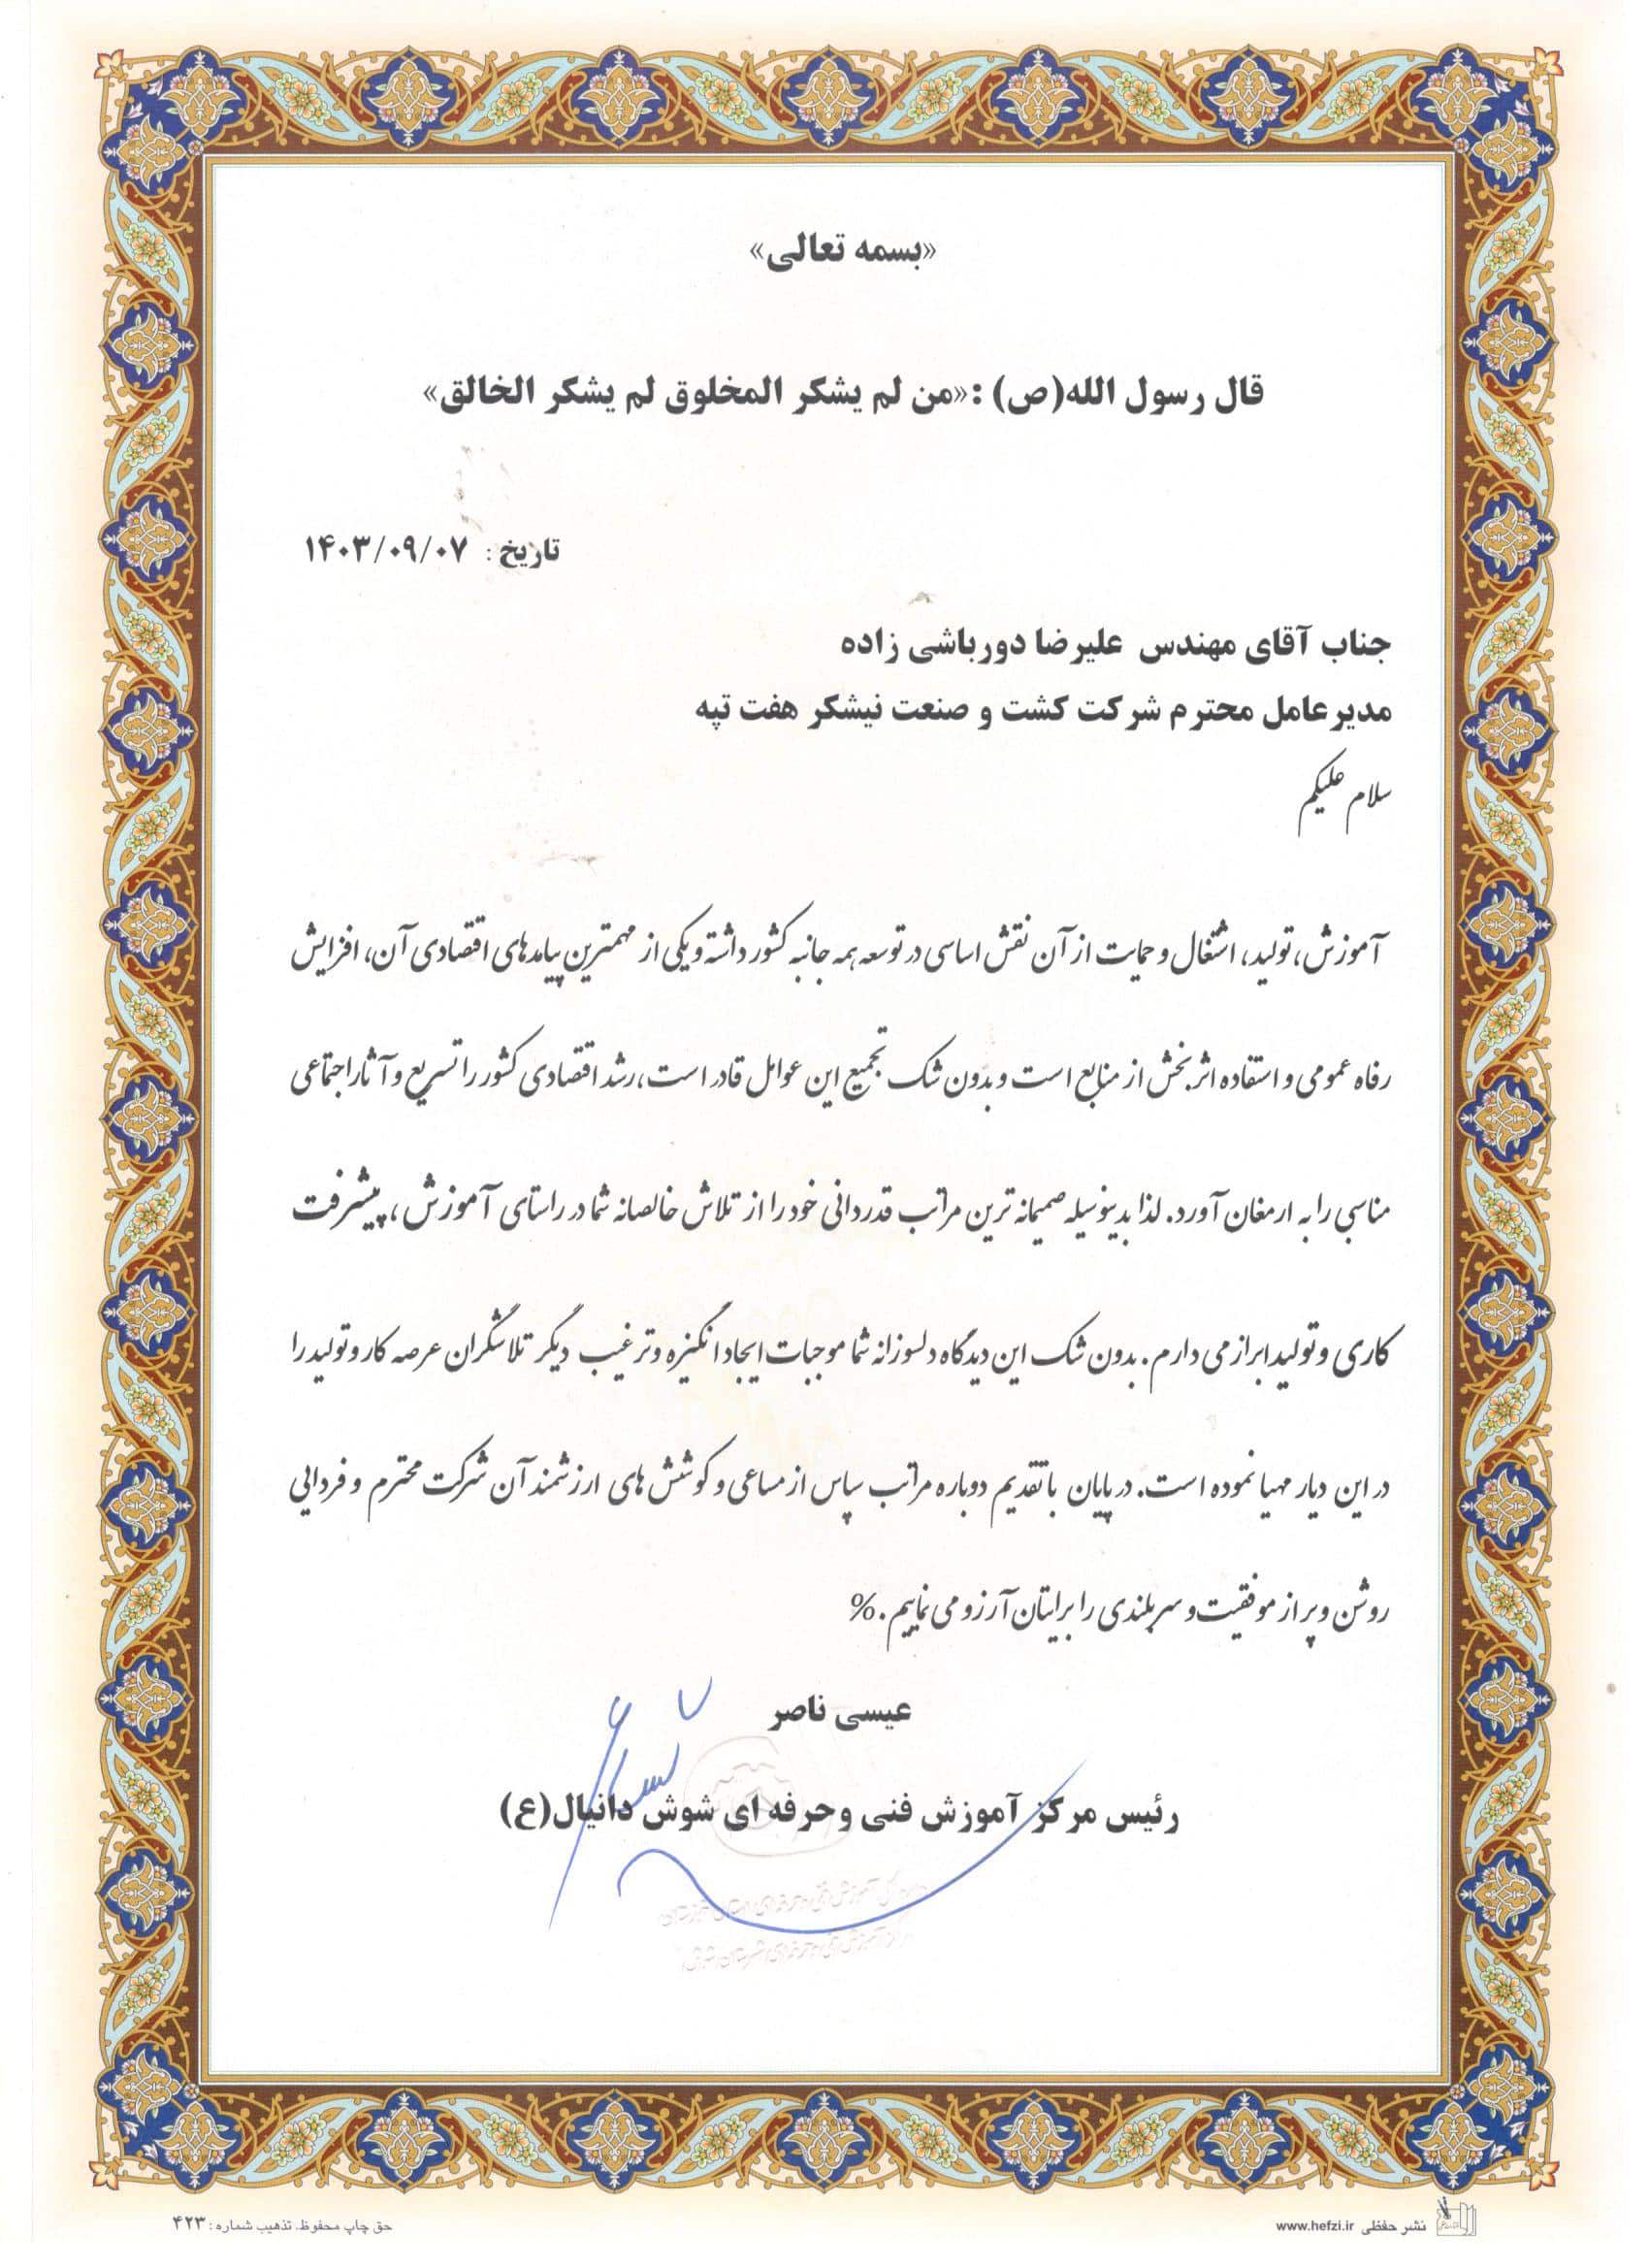 «بسمه تعالی»
قال رسول الله(ص) :«من لم یشکر المخلوق لم یشکر الخالق»
تاریخ : ۱۴۰۳/۰۹/۰۷
جناب آقای مهندس علیرضا دورباشی زاده
مدیرعامل محترم شرکت کشت و صنعت نیشکر هفت تپه
سلام علیکم
آموزش، تولید، اشتغال و حمایت از آن نقش اساسی در توسعه همه جانبه کشور داشته و یکی از مهمترین پیامدهای اقتصادی آن، افزایش
رفاه عمومی و استفاده اثربخش از منابع است و بدون شک تجمیع این عوامل قادر است، رشد اقتصادی کشور را تسریع و آثار اجتماعی
مناسبی را به ارمغان آورد. لذا بدینوسیله صمیمانه ترین مراتب قدردانی خود را از تلاش خالصانه شما در راستای آموزش ، پیشرفت
کاری و تولید ابراز می دارم. بدون شک این دیدگاه دلسوزانه شما موجبات ایجاد انگیزه وترغیب دیگر تلاشگران عرصه کار و تولید را
در این دیار مهیا نموده است. در پایان با تقدیم دوباره مراتب سپاس از مساعی و کوشش های ارزشمند آن شرکت محترم و فردایی
روشن و پر از موفقیت و سربلندی را برایتان آرزو می نماییم.%
عیسی ناصر
رئیس مرکز آموزش فنی وحرفه ای شوش دانیال(ع)
نشر حفظی www.hefzi.ir
حق چاپ محفوظ. تذهیب شماره: ۴۲۳